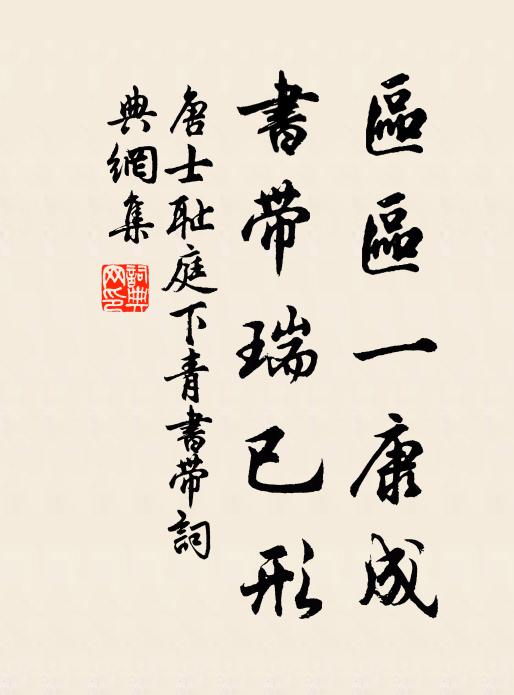 區區一康成
書帶瑞已形
唐士耻庭下青書帶詞
典網集
詞典网印